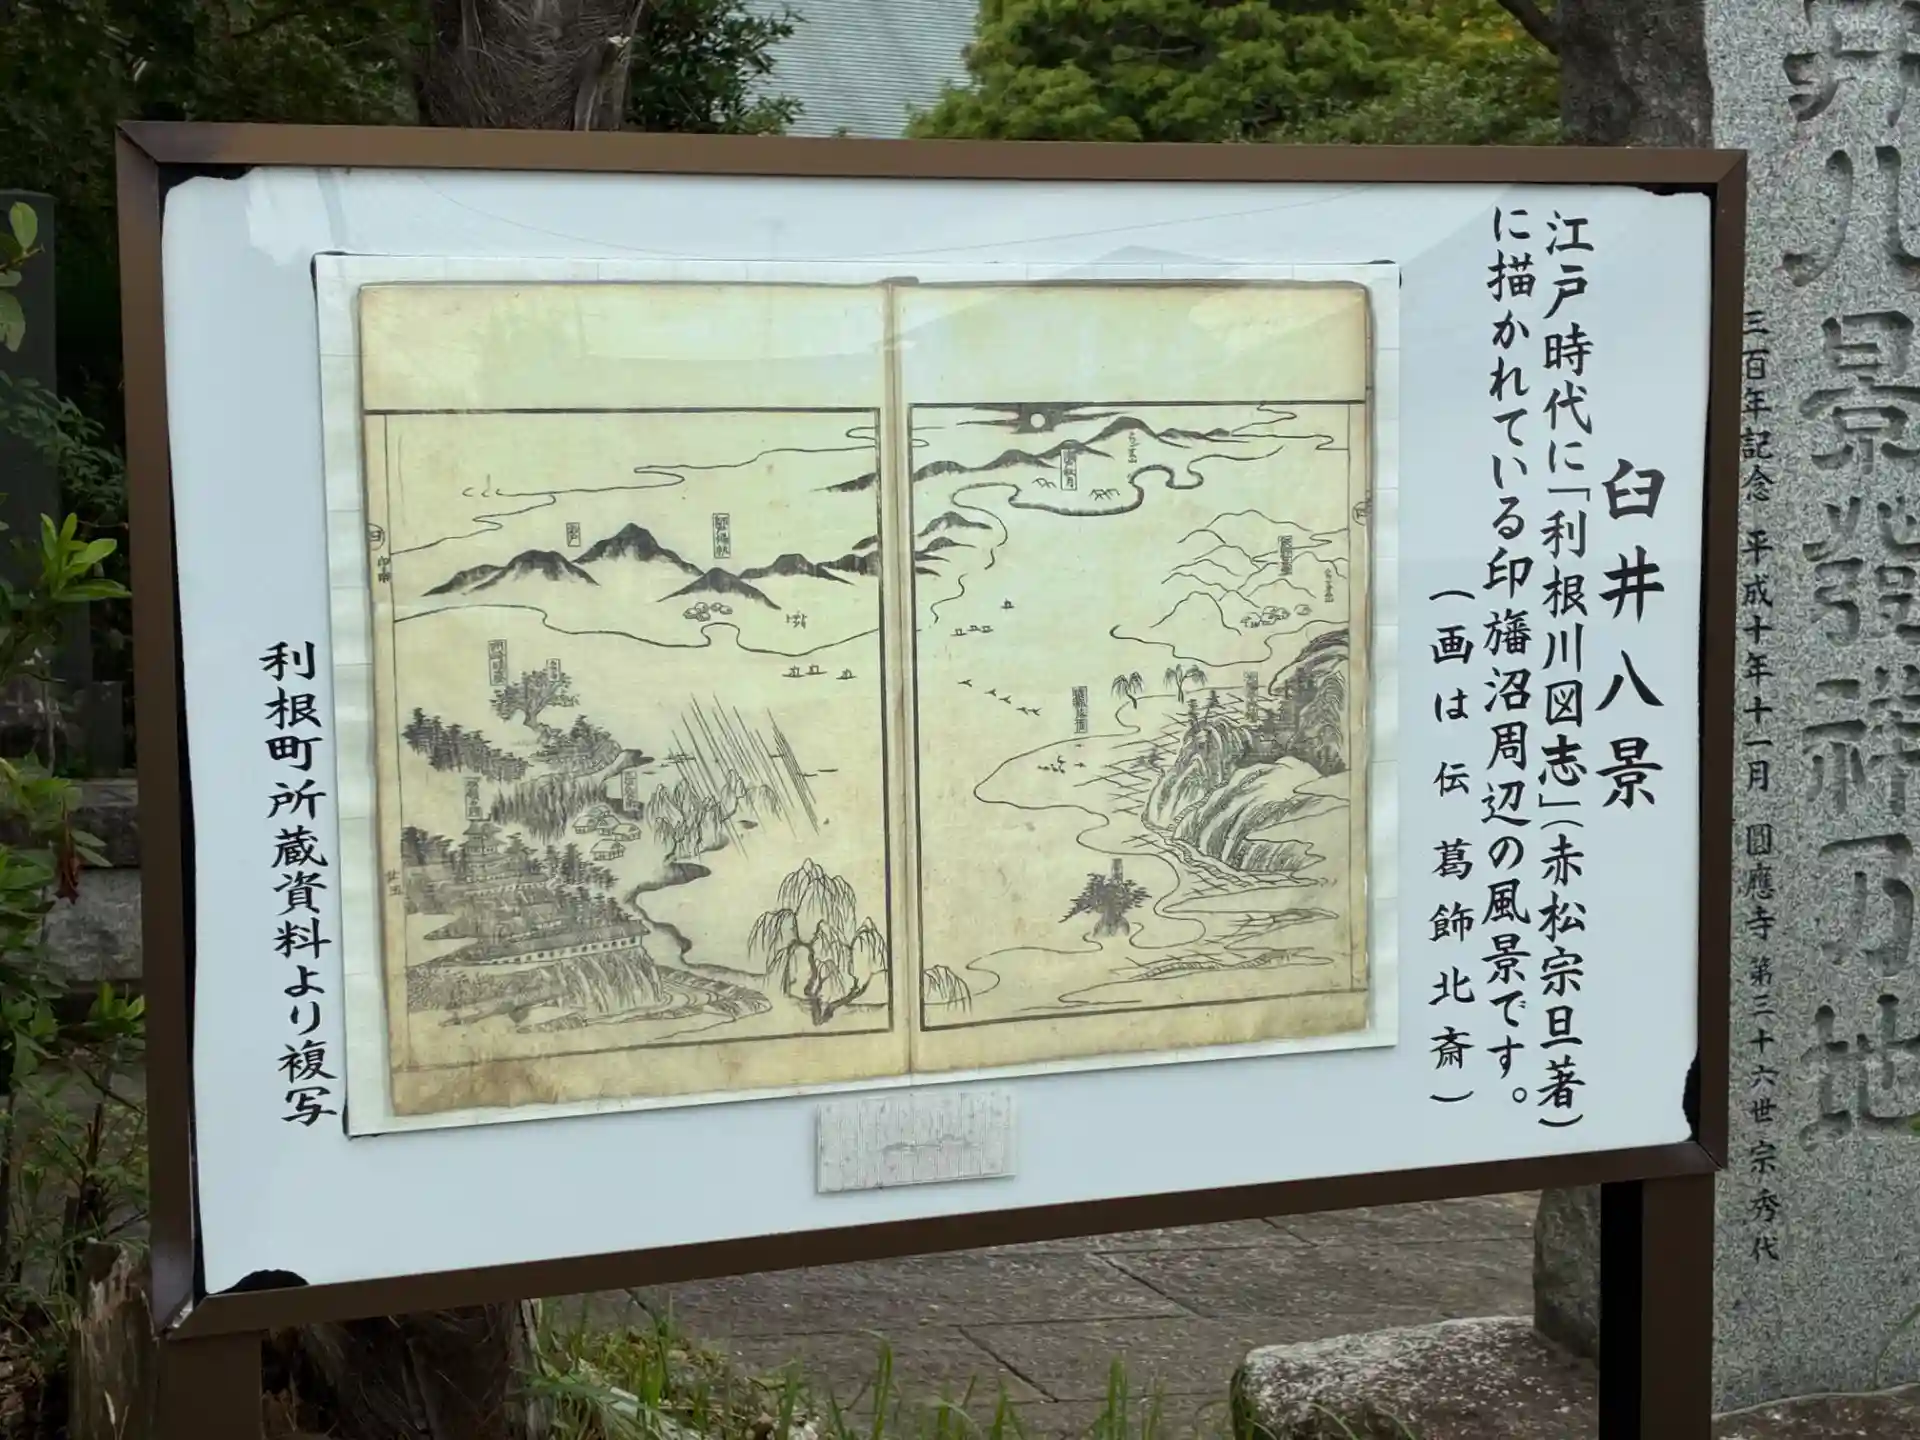 臼井八景
江戸時代に「利根川図志」(赤松宗旦著)
に描かれている印旛沼周辺の風景です。
(画は伝 葛飾北斎)
利根町所蔵資料より複写
井八景発祥乃地
三百年記念 平成十年十一月 圓應寺第三十六世宗秀代